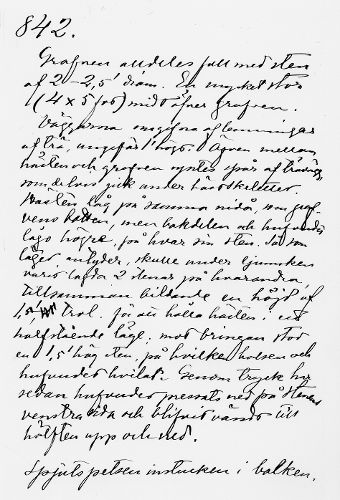 842.
Grafven alldeles full med sten
af 2-2,5' diam. En mycket stor
(4 x 5 fot) midt öfver grafven.
Väggarna omgifna af lemningar
af trä, ungefär 1' högt. Äfven mellan
hästen och grafven syntes spår af
som delvis gick under hästskelettet.
Hästen låg på samma nivå, som graf-
vens botten, men bakdelen och hufvudet
lågo högre, på hvar sin sten. Sås som
läget antyder, skulle under ljumsken
varit lagda 2 stenar på hvarandra
tillsamman bildande en höjd af
1,5 för att hålla hästen i ett
halfstående läge. mot bringan stod
en 1,5' hög sten, på hvilken halsen och
hufvudet hvilat. Genom tryck har
sedan hufvudet pressats ned på stenens
venstra sida och blifvit vändt till
hälften upp och ned.
Spjutspetsen instucken i balken.